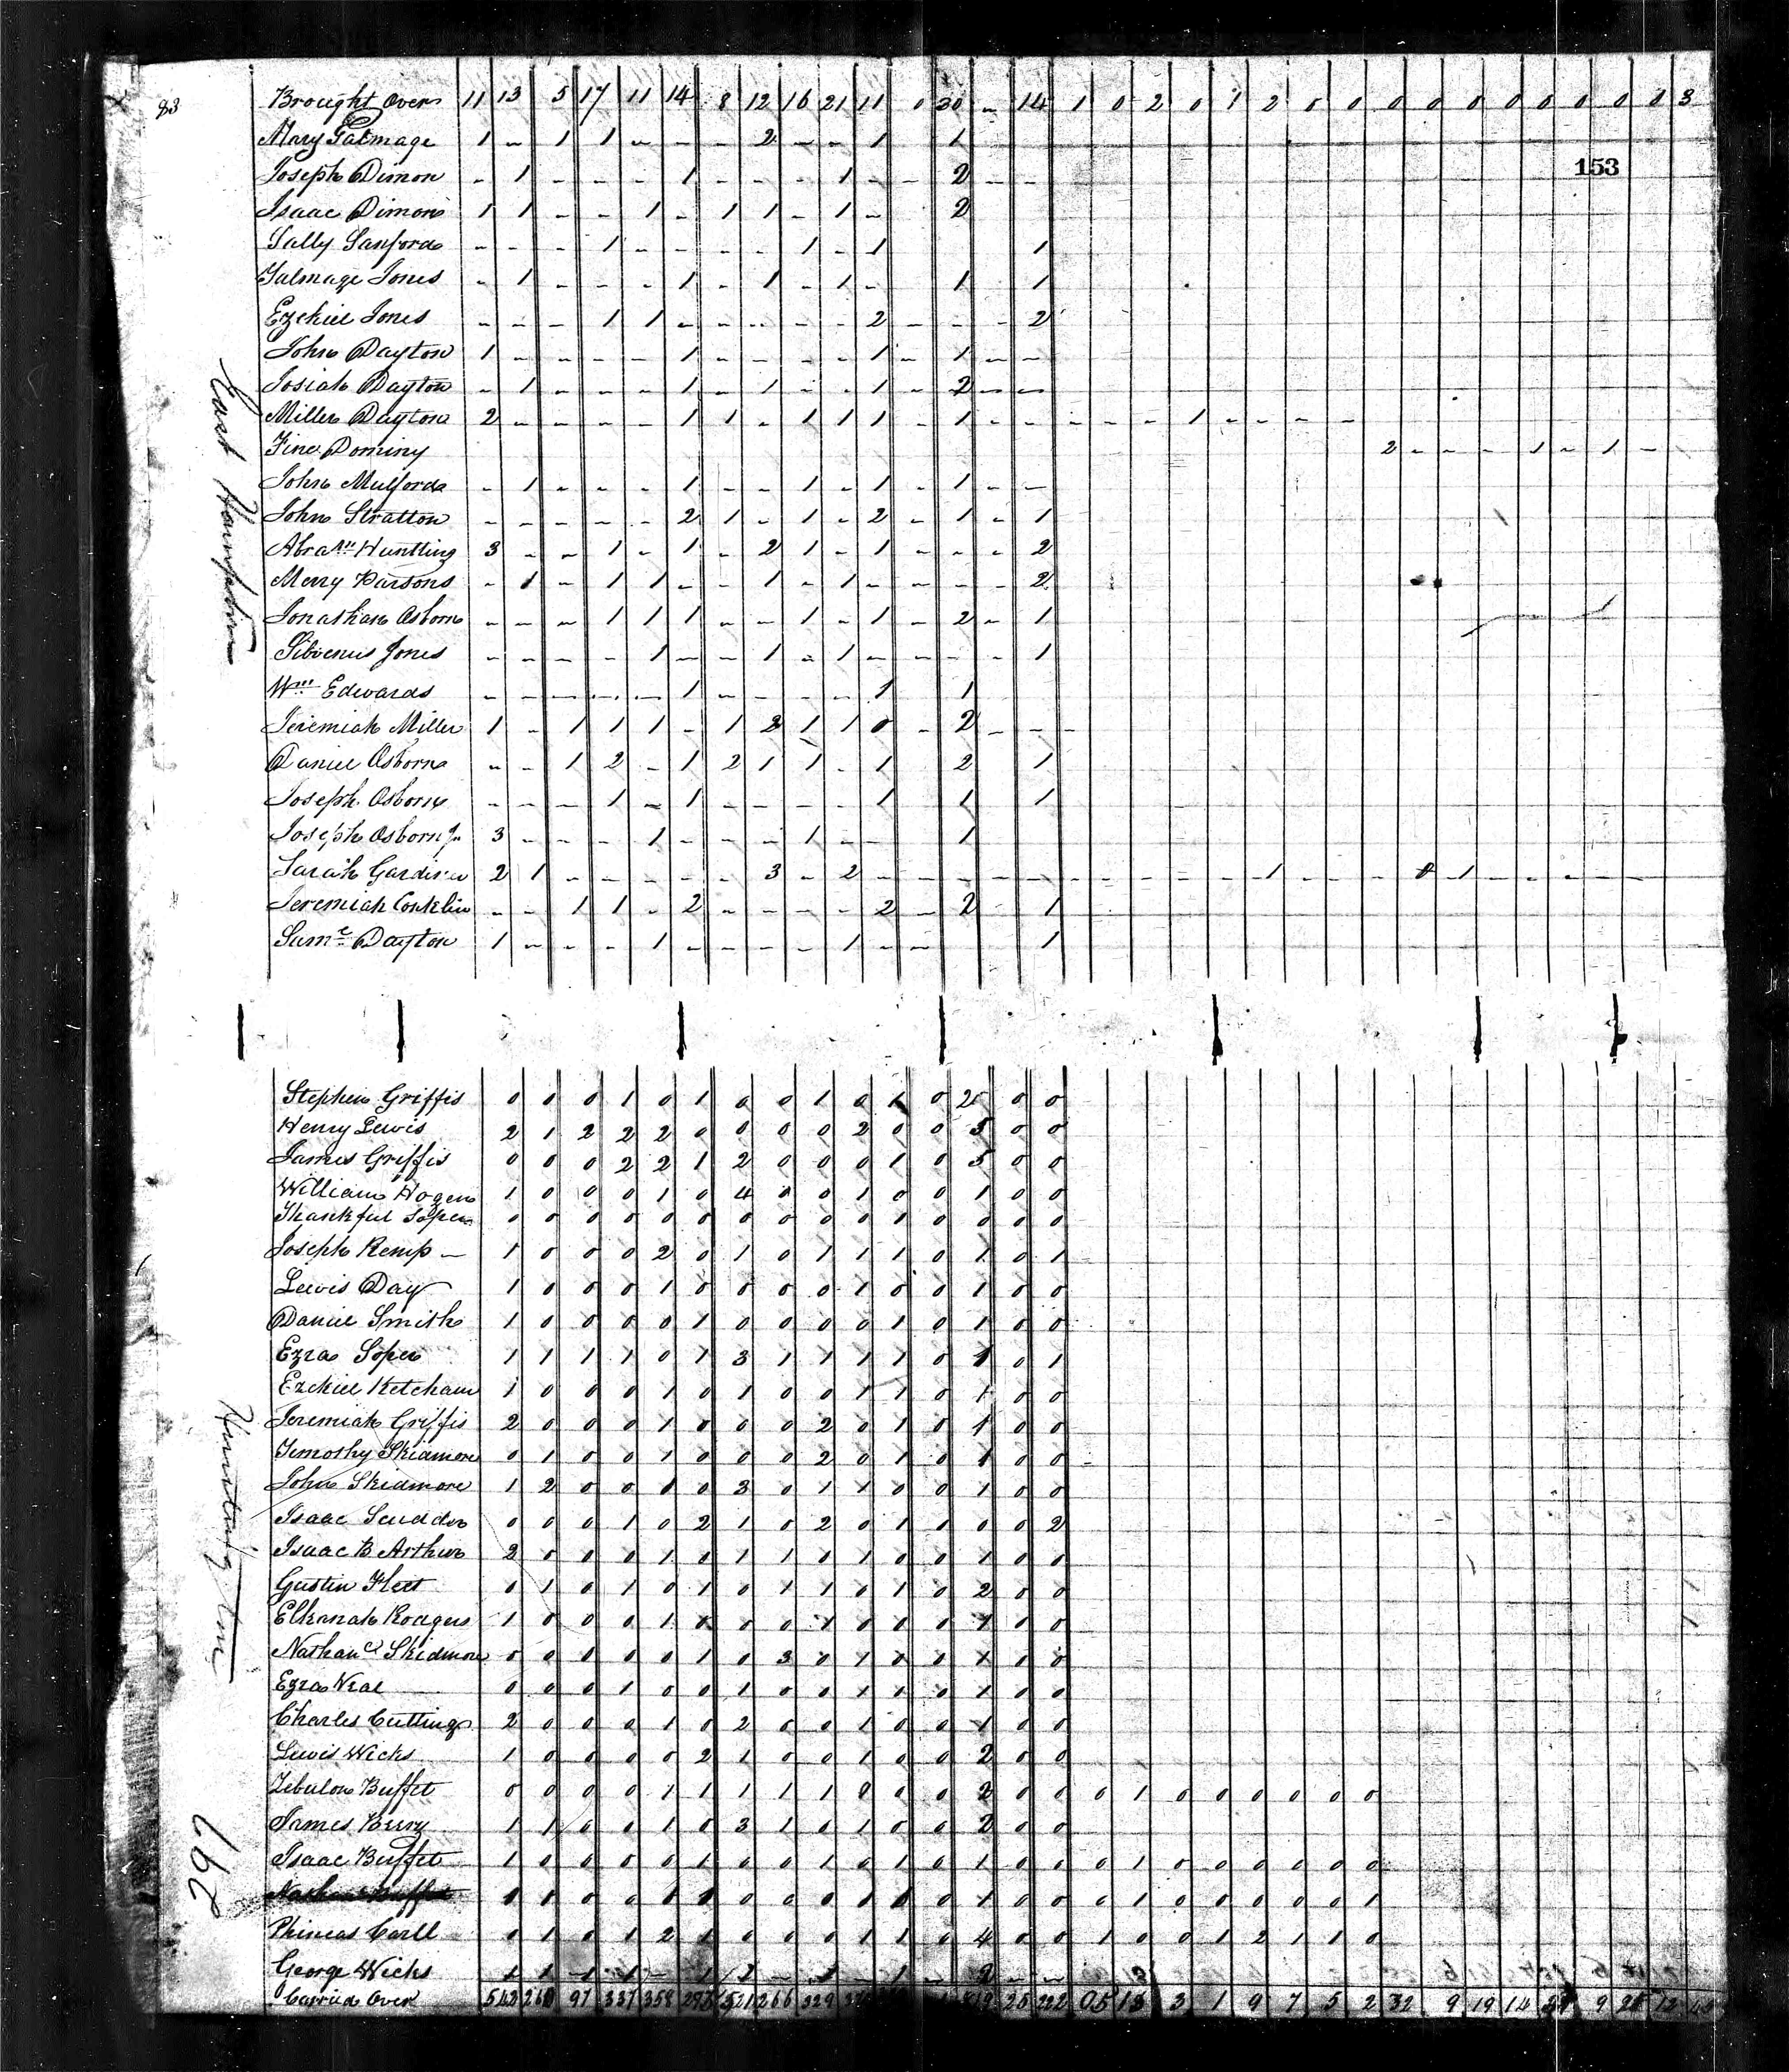 83
153
Brought Over 11 13 5 17 11 14 8 12 16 21 11 0 30 - 14 1 0 2 0 1 2 0 0 0 0 0 0 0 0 0 0 3
East Hampton
Mary Talmage 1 - 1 1 - - - 2 - - 1 1
Joseph Dimon - 1 - - - 1 - - - 1 - - 2 - -
Isaac Dimon 1 1 - - 1 - 1 1 - 1 - 2
Sally Sanford - - - 1 - - - - 1 - 1 1
Talmage Jones - 1 - - - 1 - 1 - 1 - 1 1
Ezekiel Jones - - - 1 1 - - - - - 2 - - - 2
John Dayton 1 - - - - 1 - - - - 1 - 1 - -
Josiah Dayton - 1 - - - 1 - 1 - - 1 - 2 - -
Miller Dayton 2 - - - - 1 1 - 1 1 1 - 1 - - - - - 1 - - - -
Fine Dominy 2 - - - 1 - 1 -
John Mulford - 1 - - - 1 - - 1 - 1 - 1 - -
John Stratton - - - - - 2 1 - 1 - 2 - 1 - 1
Abram Huntting 3 - - 1 - 1 - 2 1 - 1 - - - 2
Merry Parsons - 1 - 1 1 - - 1 - 1 - - - - 2
Jonathan Osborn - - - 1 1 1 - - 1 - 1 - 2 - 1
Jones - - - - 1 - - 1 - 1 - - - - 1
Wm Edwards - - - - - 1 - - - - 1 1
Jeremiah Miller 1 - 1 1 1 - 1 2 1 1 0 - 2 - - -
Daniel Osborn - - 1 2 - 1 2 1 1 - 1 2 1
Joseph Osborn - - - 1 - 1 - - - - 1 1 1
Joseph Osborn Jr 3 - - - 1 - - - 1 - - 1
Sarah Gardiner 2 1 - - - - - 3 - 2 - - - - - - - - - - 1 - - - 0 1 - - - - -
Jeremiah Conklin - - 1 1 - 2 - - - - 2 - 2 1
Saml Dayton 1 - - - 1 - - - - 1 - - 1
Huntington
Stephen Griffis 0 0 0 1 0 1 0 0 1 0 1 0 2 0 0
Henry Lewis 2 1 2 2 2 0 0 0 0 2 0 0 3 0 0
James Griffis 0 0 0 2 2 1 2 0 0 0 1 0 3 0 0
William Hogen 1 0 0 0 1 0 4 0 0 1 0 0 1 0 0
Thankful Soper 0 0 0 0 0 0 0 0 0 0 1 0 0 0 0
Joseph Kemp - 1 0 0 0 2 0 1 0 1 1 1 0 1 0 1
Lewis Day 1 0 0 0 1 0 0 0 0 1 0 0 1 0 0
Daniel Smith 1 0 0 0 0 1 0 0 0 0 1 0 1 0 0
Ezra Soper 1 1 1 1 0 1 3 1 1 1 1 0 1 0 1
Ezekiel Ketcham 1 0 0 0 1 0 1 0 0 1 1 0 1 0 0
Jeremiah Griffis 2 0 0 0 1 0 0 0 2 0 1 0 1 0 0
Timothy Skidmore 0 1 0 0 1 0 0 0 2 0 1 0 1 0 0
John Skidmore 1 2 0 0 1 0 3 0 1 1 0 0 1 0 0
Isaac Scudder 0 0 0 1 0 2 1 0 2 0 1 1 0 0 2
Isaac B Arthur 2 0 0 0 1 0 1 1 0 1 0 0 1 0 0
Gustin Fleet 0 1 0 1 0 1 0 1 1 0 1 0 2 0 0
Elkanah Rodgers 1 0 0 0 1 1 0 0 1 0 0 0 1 0 0
Nathanl Skidmore 0 0 0 0 0 1 0 3 0 1 0 0 1 0 0
Ezra Neal 0 0 0 1 0 0 1 0 0 1 1 0 1 0 0
Charles Cutting 2 0 0 0 1 0 2 0 0 1 0 0 1 0 0
Lewis Wicks 1 0 0 0 0 2 1 0 0 1 0 0 2 0 0
Zebulon Buffet 0 0 0 0 1 1 1 1 1 0 0 0 2 0 0 0 1 0 0 0 0 0 0
James Berry 1 1 0 0 1 0 3 1 0 1 0 0 2 0 0
Isaac Buffet 1 0 0 0 0 1 0 0 1 0 1 0 1 0 0 0 1 0 0 0 0 0 0
Buffet 1 1 0 0 1 1 0 0 0 1 1 0 1 0 0 0 1 0 0 0 0 0 1
Phineas Carll 0 1 0 1 2 1 0 0 0 1 1 0 4 0 0 1 0 0 1 2 1 1 0
George Wicks 1 1 - 1 - 1 2 - 1 - 1 - 2 - -
Carried Over 260 97 337 358 266 329 25 222 3 1 9 7 5 2 32 9 19 14 9 12
297